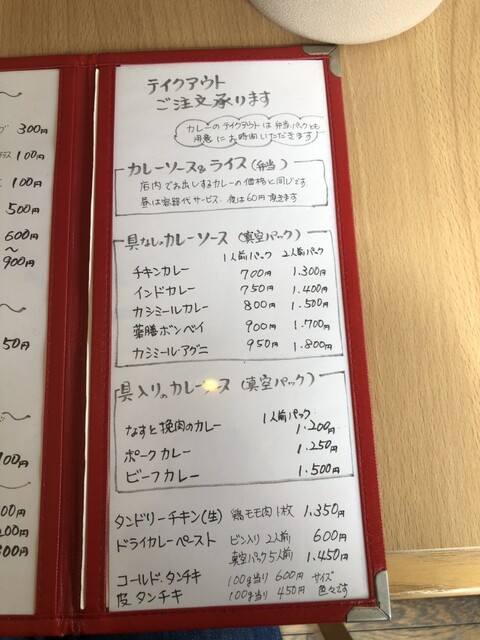 300円
100円
100円
500円
600円
〜
900円
50円
100円
00円
00円
300円
テイクアウト
ご注文承ります
カレーのテイクアウトは弁当、パックとも
用意にお時間いただきます
カレーソース&ライス(弁当)
店内でお出しするカレーの価格と同じです
昼は容器代サービス、夜は60円頂きます
具なしのカレーソース(真空パック)
1人前パック 2人前パック
チキンカレー 700円 1.300円
インドカレー 750円 1.400円
カシミールカレー 800円 1.500円
薬膳ボンベイ 900円 1.700円
カシミール・アグニ 950円 1.800円
具入りのカレーソース(真空パック)
1人前パック
なすと挽肉のカレー 1.200円
ポークカレー 1.250円
ビーフカレー 1.500円
タンドリーチキン(生) 鶏モモ肉1枚 1.350円
ドライカレーペースト ビン入り2人前 600円
真空パック5人前 1.450円
コールド・タンチキ 100g当り 600円 サイズ
皮タンチキ 100g当り 450円 色々です